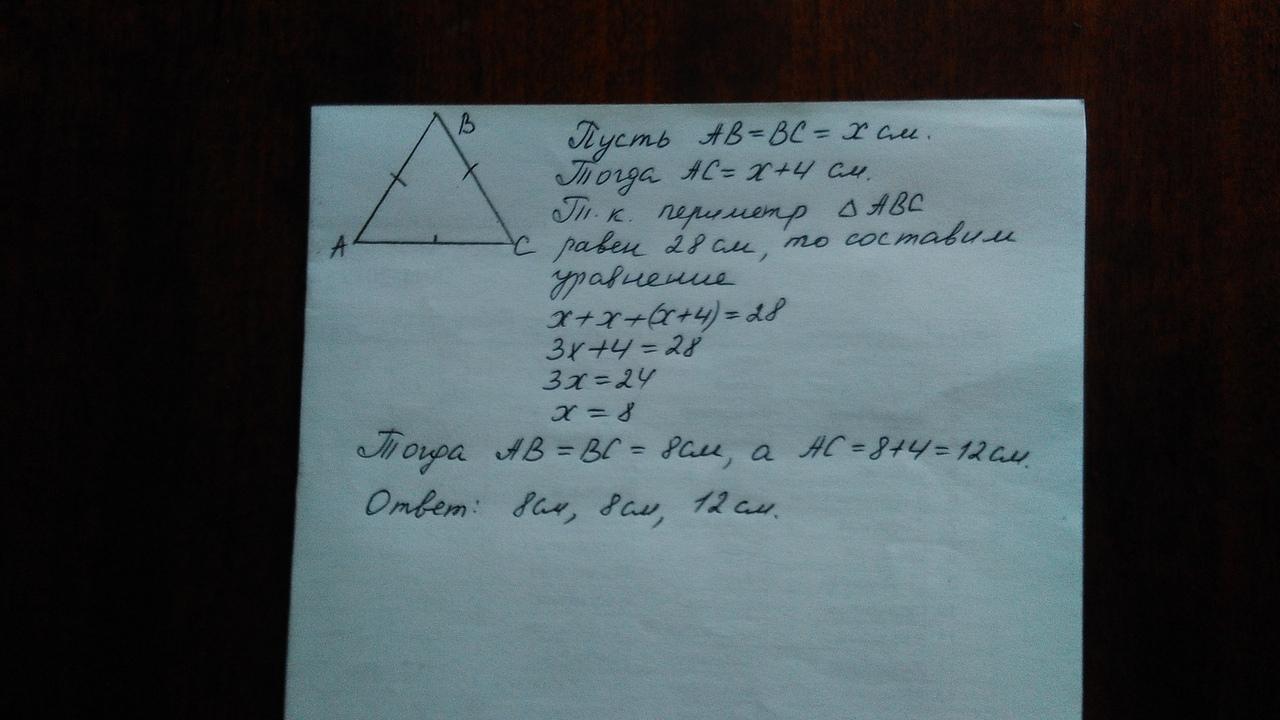 B
A
C
Пусть AB = BC = x см.
Тогда AC = x+4 см.
Т.к. периметр △ ABC
равен 28 см, то составим
уравнение
x + x + (x+4) = 28
3x + 4 = 28
3x = 24
x = 8
Тогда AB = BC = 8см, а AC = 8+4 = 12 см.
Ответ: 8см, 8см, 12 см.